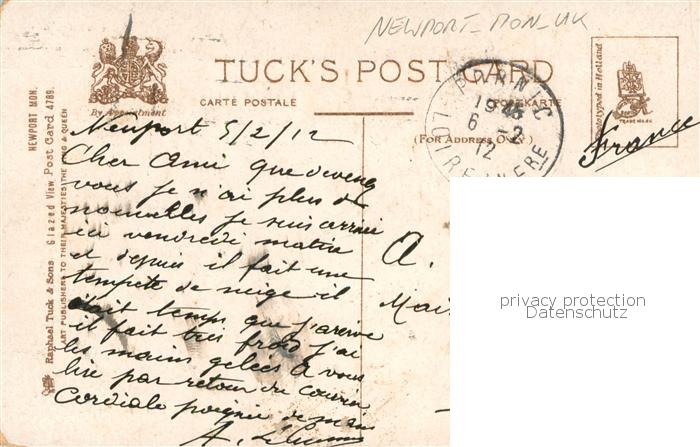 NEWPORT_MON_UK
TUCK'S POST CARD
By Appointment
CARTE POSTALE
POSTKARTE
(FOR ADDRESS ONLY.)
PORNIC
19 45
6 - 2
12
LOIRE INFRE
Phototyped in Holland
TRADE MARK
France
NEWPORT MON.
Raphael Tuck & Sons Glazed View Post Card 4789.
ART PUBLISHERS TO THEIR MAJESTIES THE KING & QUEEN
Newport 5/2/12
Cher Ami que devenez
vous je n'ai plus de
nouvelles je suis arrivé
ici vendredi matin
et depuis il fait une
tempete de neige il
était temps que j'arrive
il fait très froid j'ai
les mains gelées a vous
lire par retour du courrier
Cordiale poignée de main
A.
A.
Mai
privacy protection
Datenschutz